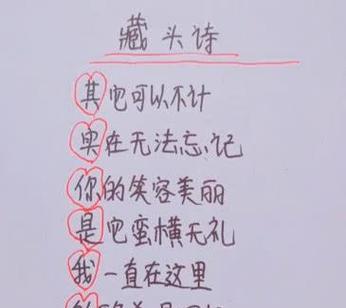 藏头诗
其它可以不计
实在无法忘记
你的笑容美丽
是它蛮横无礼
我一直在这里